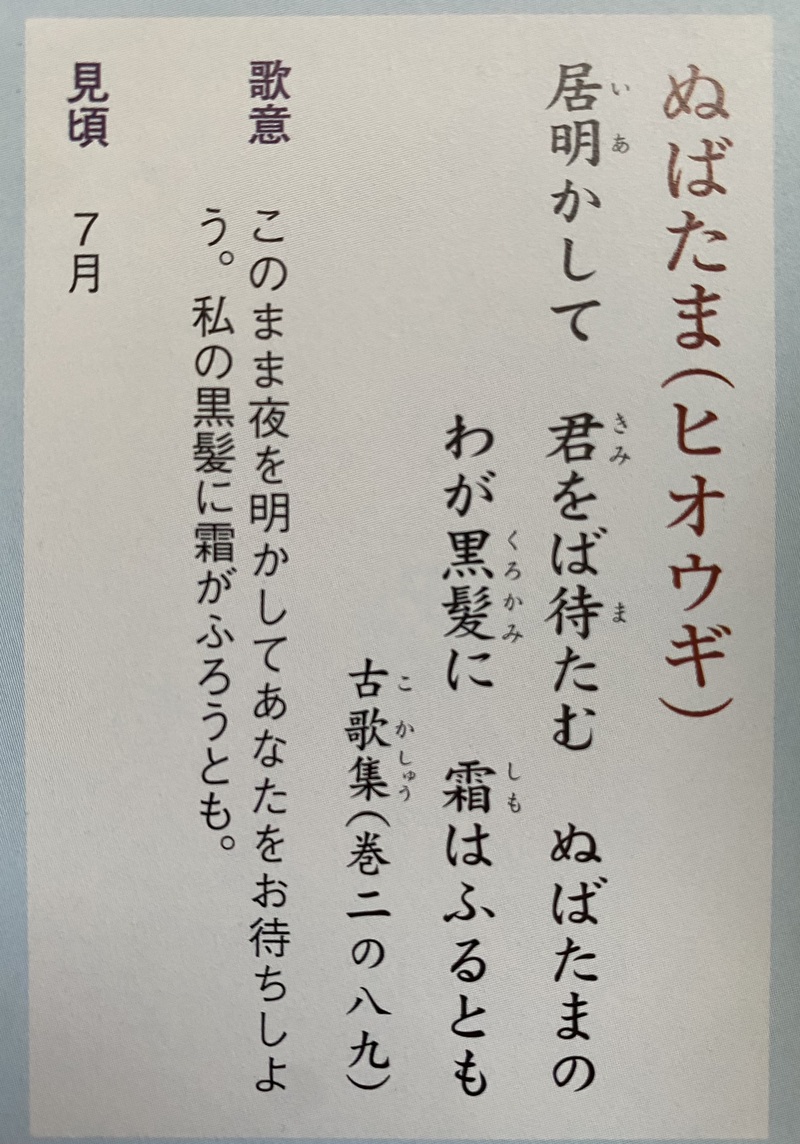 ぬばたま(ヒオウギ)
居明かして　君をば待たむ　ぬばたまの
いあ　きみ　ま
わが黒髪に　霜はふるとも
くろかみ　しも
古歌集(巻二の八九)
こかしゅう
歌意　このまま夜を明かしてあなたをお待ちしよ
う。私の黒髪に霜がふろうとも。
見頃　７月